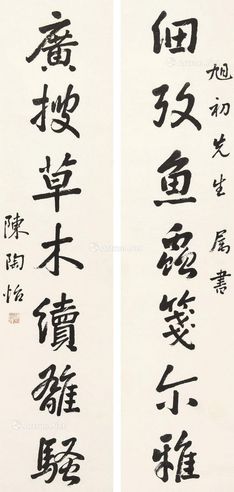 旭初先生属書
細攷魚蟲箋尔雅
廣搜草木續離騷
陳陶怡